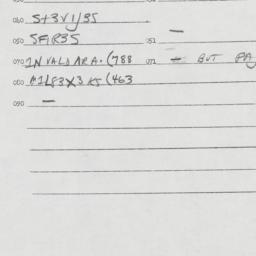 040 S+3V1/35
050 SFIR35 051 —
070 INVALDARA.(788 071 — BUT PA
080 A1L83X3K5(463
090 —